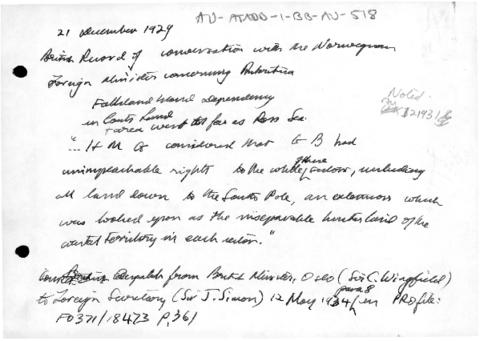 AU-ATADD-1-BB-AU-518
21 December 1929
British Record of conversation with the Norwegian
Foreign Minister concerning Antarctica
Falkland Island Dependency
in Coats Land
+ area west as far as Ross Sea
Noted.
21931
"... H M G considered that G B had
unimpeachable rights to the whole of these sectors, including
all land down to the South Pole, an extension which
was looked upon as the inseparable hinterland of the
coastal territory in each sector."
despatch from British Minister, Oslo (Sir C. Wingfield)
to Foreign Secretary (Sir J. Simon) 12 May 1934, para 8 in PRO file:
FO371/18473 P,361